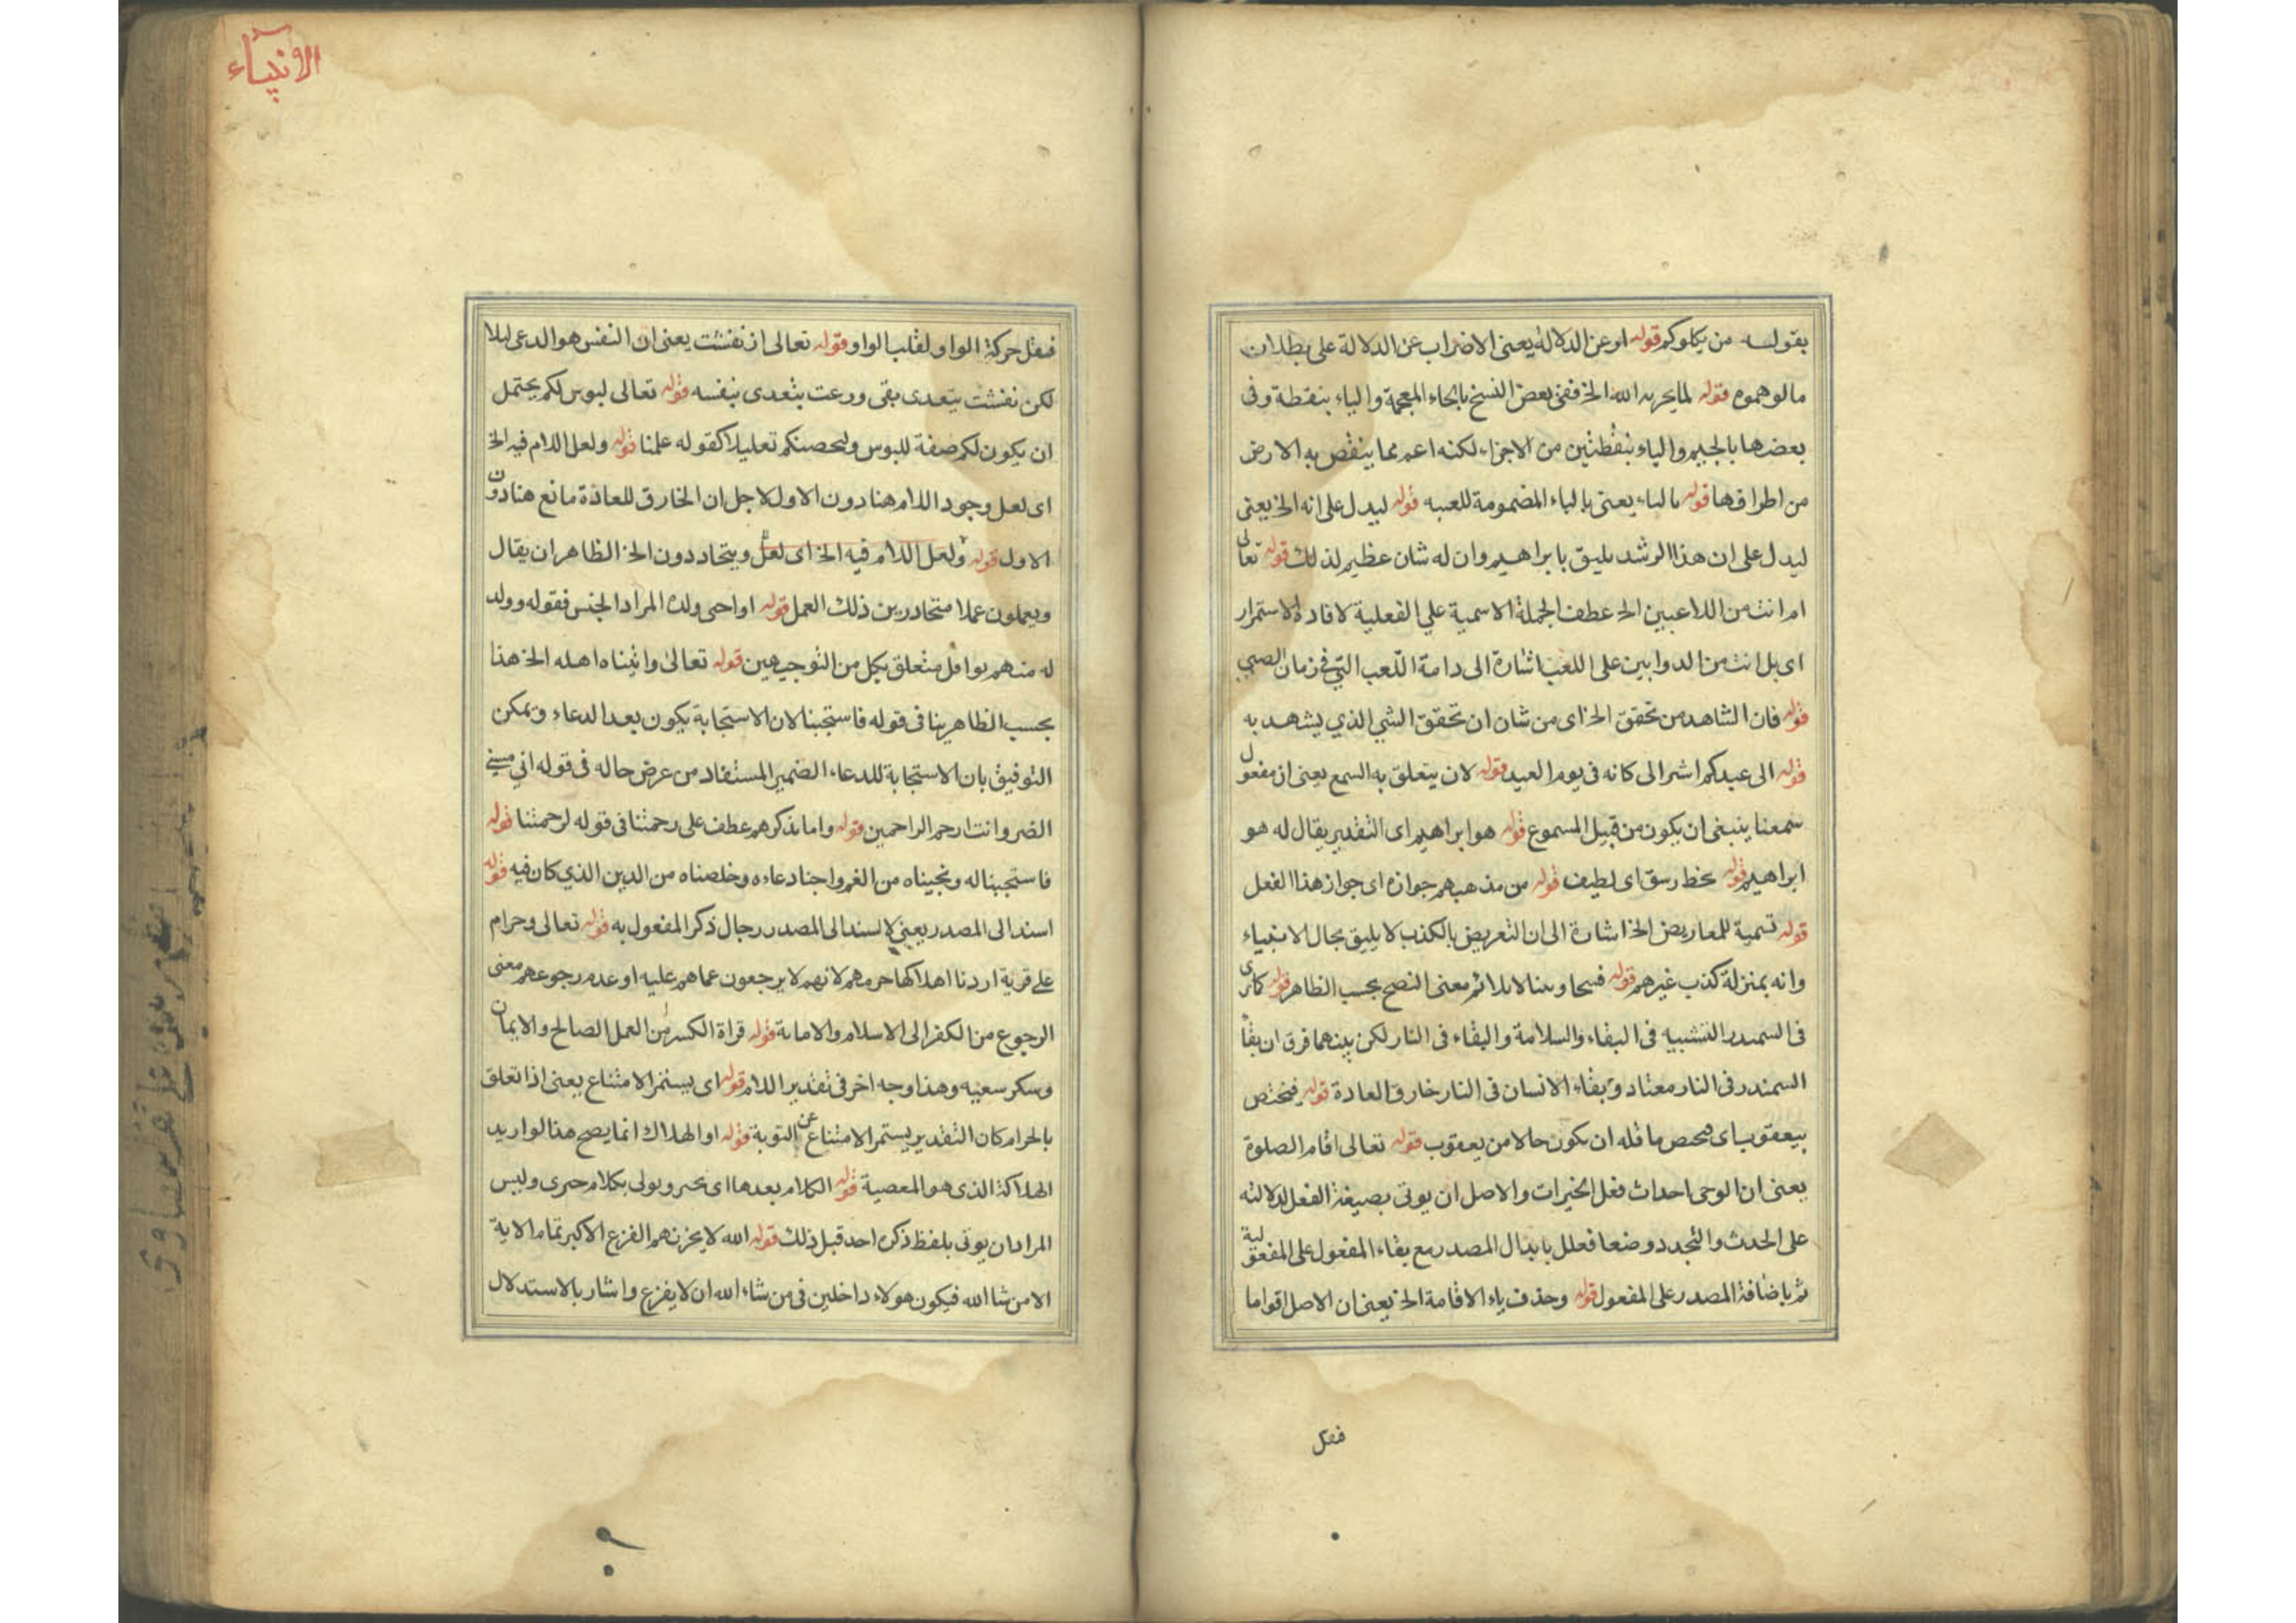 بقولسه من يكلوكم قوله او عن الدلالة يعنى الاضراب عن الدلالة على بطلان
مالوهموه قوله لما يجريه الله الخ ففى بعض النسخ بالخاء المعجمة والباء بنقطة وفى
بعضها بالجيم والياء بنقطتين من الاجزاء لكنه اعم مما ينقص به الارض
من اطرافها قوله بالباء يعنى بالباء المضمومة للعببه قوله ليدل على انه الخ يعنى
ليدل على ان هذا الرشد يليق بابراهيم وان له شان عظيم لذلك قوله تعالى
ام انت من اللاعبين الخ عطف الجملة الاسمية على الفعلية لافادة الاستمرار
اى بل انت من الدوابين على اللعب اشارة الى دامة اللعب التى فى زمان الصبى
قوله فان الشاهد من تحقق الخ اى من شان ان تحقق الشئ الذي يشهد به
قوله الى عيدكم اشر الى كانه فى يوم العيد قوله لان يتعلق به السمع يعنى ان مفعول
سمعنا ينبغى ان يكون من قبيل المسموع قوله هو ابراهيم اى التقدير يقال له هو
ابراهيم قوله بخط رسق اى لطيف قوله من مذهبهم جوازه اى جواز هذا الفعل
قوله تسمية للمعاريض الخ اشارة الى ان التعريض بالكذب لا يليق بحال الانبياء
وانه بمنزلة كذب غيرهم قوله فبيحا وبينا لا يلائم معنى النصح بحسب الظاهر قوله كما ترى
فى السمندر التشبيه فى البقاء والسلامة والبقاء فى النار لكن بينهما فرق ان بقأ
السمندر فى النار معتاد وبقاء الانسان فى النار خارق العادة قوله فيختص
بيعقوب اى فيختص ما قله ان يكون حالا من يعقوب قوله تعالى اقام الصلوة
يعنى ان الوحى احداث فعل الخيرات والاصل ان يوتى بصيغة الفعل لدلالته
على الحدث والتجدد وضعا فعلل بابدال المصدر مع بقاء المفعول على المفعولية
ثم باضافة المصدر على المفعول قوله وحذف ياء الاقامة الخ يعنى ان الاصل اقواما
فنقل
الانبيآء
فنقل حركة الواو لقلب الواو قوله تعالى اذ نفشت يعنى ان النفش هو الرعى ليلا
لكن نفشت يتعدى بفى ورعت يتعدى بنفسه قوله تعالى لبوس لكم يحتمل
ان يكون لكم صفة للبوس ولتحصنكم تعليلا كقوله علمنا قوله ولعل اللام فيه الخ
اى لعل وجود اللام هنا دون الاول لاجل ان الخارق للعادة مانع هنا دون
الاول قوله ولعل اللام فيه الخ اى لعل ويتحاد دون الخ الظاهر ان يقال
ويعملون عملا متحادرين ذلك العمل قوله او احى ولده المراد الجنس فقوله وولد
له منهم نوافل متعلق بكل من التوجيهين قوله تعالى واتيناه اهله الخ هذا
بحسب الظاهر ينافى قوله فاستجبنا لان الاستجابة يكون بعد الدعاء ويمكن
التوفيق بان الاستجابة للدعاء الضمير المستفاد من عرض حاله فى قوله انى مسنى
الضر وانت ارحم الراحمين قوله واما بذكرهم عطف على رحمتنا فى قوله لرحمتنا قوله
فاستجبنا له ونجيناه من الغم واجبنا دعاءه وخلصناه من الدين الذي كان فيه قوله
اسند الى المصدر يعنى لا لسند الى المصدر رجال ذكر المفعول به قوله تعالى وحرام
على قرية اردنا اهلاكها حرمهم لانهم لا يرجعون عما هم عليه او عدم رجوعهم معنى
الرجوع من الكفر الى الاسلام والامانة قوله قراة الكسر من العمل الصالح والايمان
وسكر سعيه وهذا وجه اخر فى تقدير اللام قوله اى يستمر الامتناع يعنى اذا تعلق
بالحرام كان التقدير يستمر الامتناع عن التوبة قوله او الهلاك انما يصح هذا لو اريد
الهلاكة الذى هو المعصية قوله الكلام بعدها اى بحر ويولى بكلام جرى وليس
المراد ان يوتى بلفظ ذكره احد قبل ذلك قوله الله لا يحزنهم الفزع الاكبر تمام الاية
الا من شا الله فيكون هولاء داخلين فى من شاء الله ان لا يفزع واشار بالاستدلال